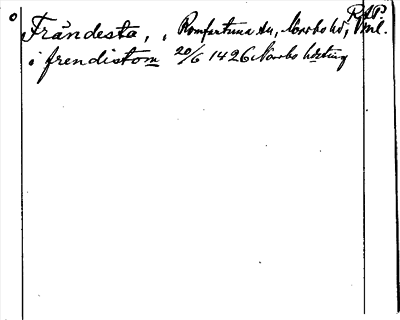 RAP.
Frändesta, , Romfartuna sn, Norrbo hd, Vml.
i frendistom 20/6 1426 Norrbo häradsting